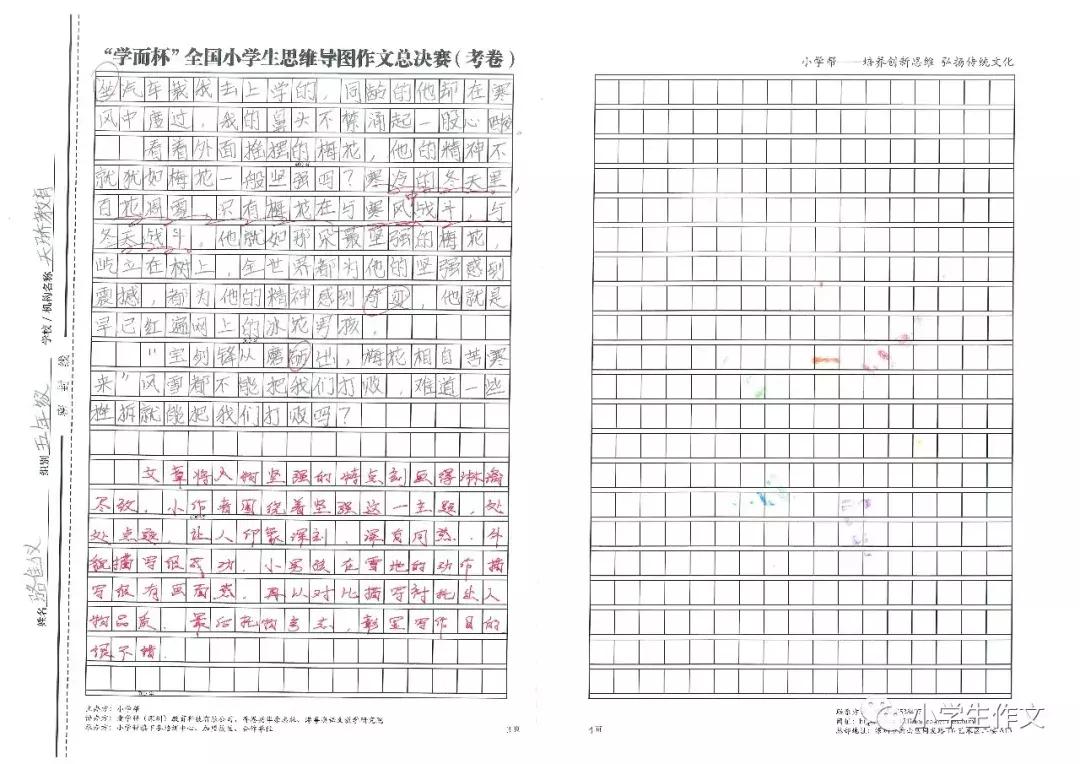 “学而杯”全国小学生思维导图作文总决赛（考卷）
坐汽车载我去上学的，同龄的他却在寒
风中度过，我的鼻头不禁涌起一股心酸
看着外面摇摆的梅花，他的精神不
就犹如梅花一般坚强吗？寒冷的冬天里，
百花凋零，只有梅花在与寒风战斗，与
冬天战斗，他就如那朵最坚强的梅花，
屹立在树上，全世界都为他的坚强感到
震撼，都为他的精神感到，他就是
早已红遍网上的冰花男孩．
“宝剑锋从磨砺出，梅花相自苦寒
来”风雪都不能把我们打败，难道一些
挫折就能把我们打败吗？
文章将人物坚强的特点刻画得淋漓
尽致．小作者围绕着坚强这一主题，处
处点题，让人印象深刻，深有同感．外
貌描写很成功，小男孩在雪地的动作描
写很有画面感．再以对比描写衬托出人
物品质．最后托物言志，彰显写作目的
很不错．
主办方：小学帮
3页
姓名
组别 五年级
学校/机构名称 天琳教育
密封线
小学帮——培养创新思维 弘扬传统文化
4页
小学生作文